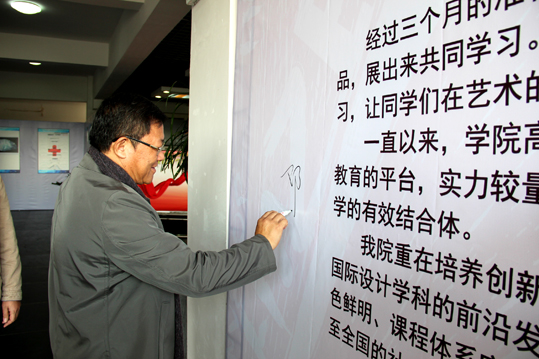 经过三个月的准
品，展出来共同学习。
习，让同学们在艺术的
一直以来，学院高
教育的平台，实力较量
学的有效结合体。
我院重在培养创新
国际设计学科的前沿发
色鲜明、课程体系
至全国的